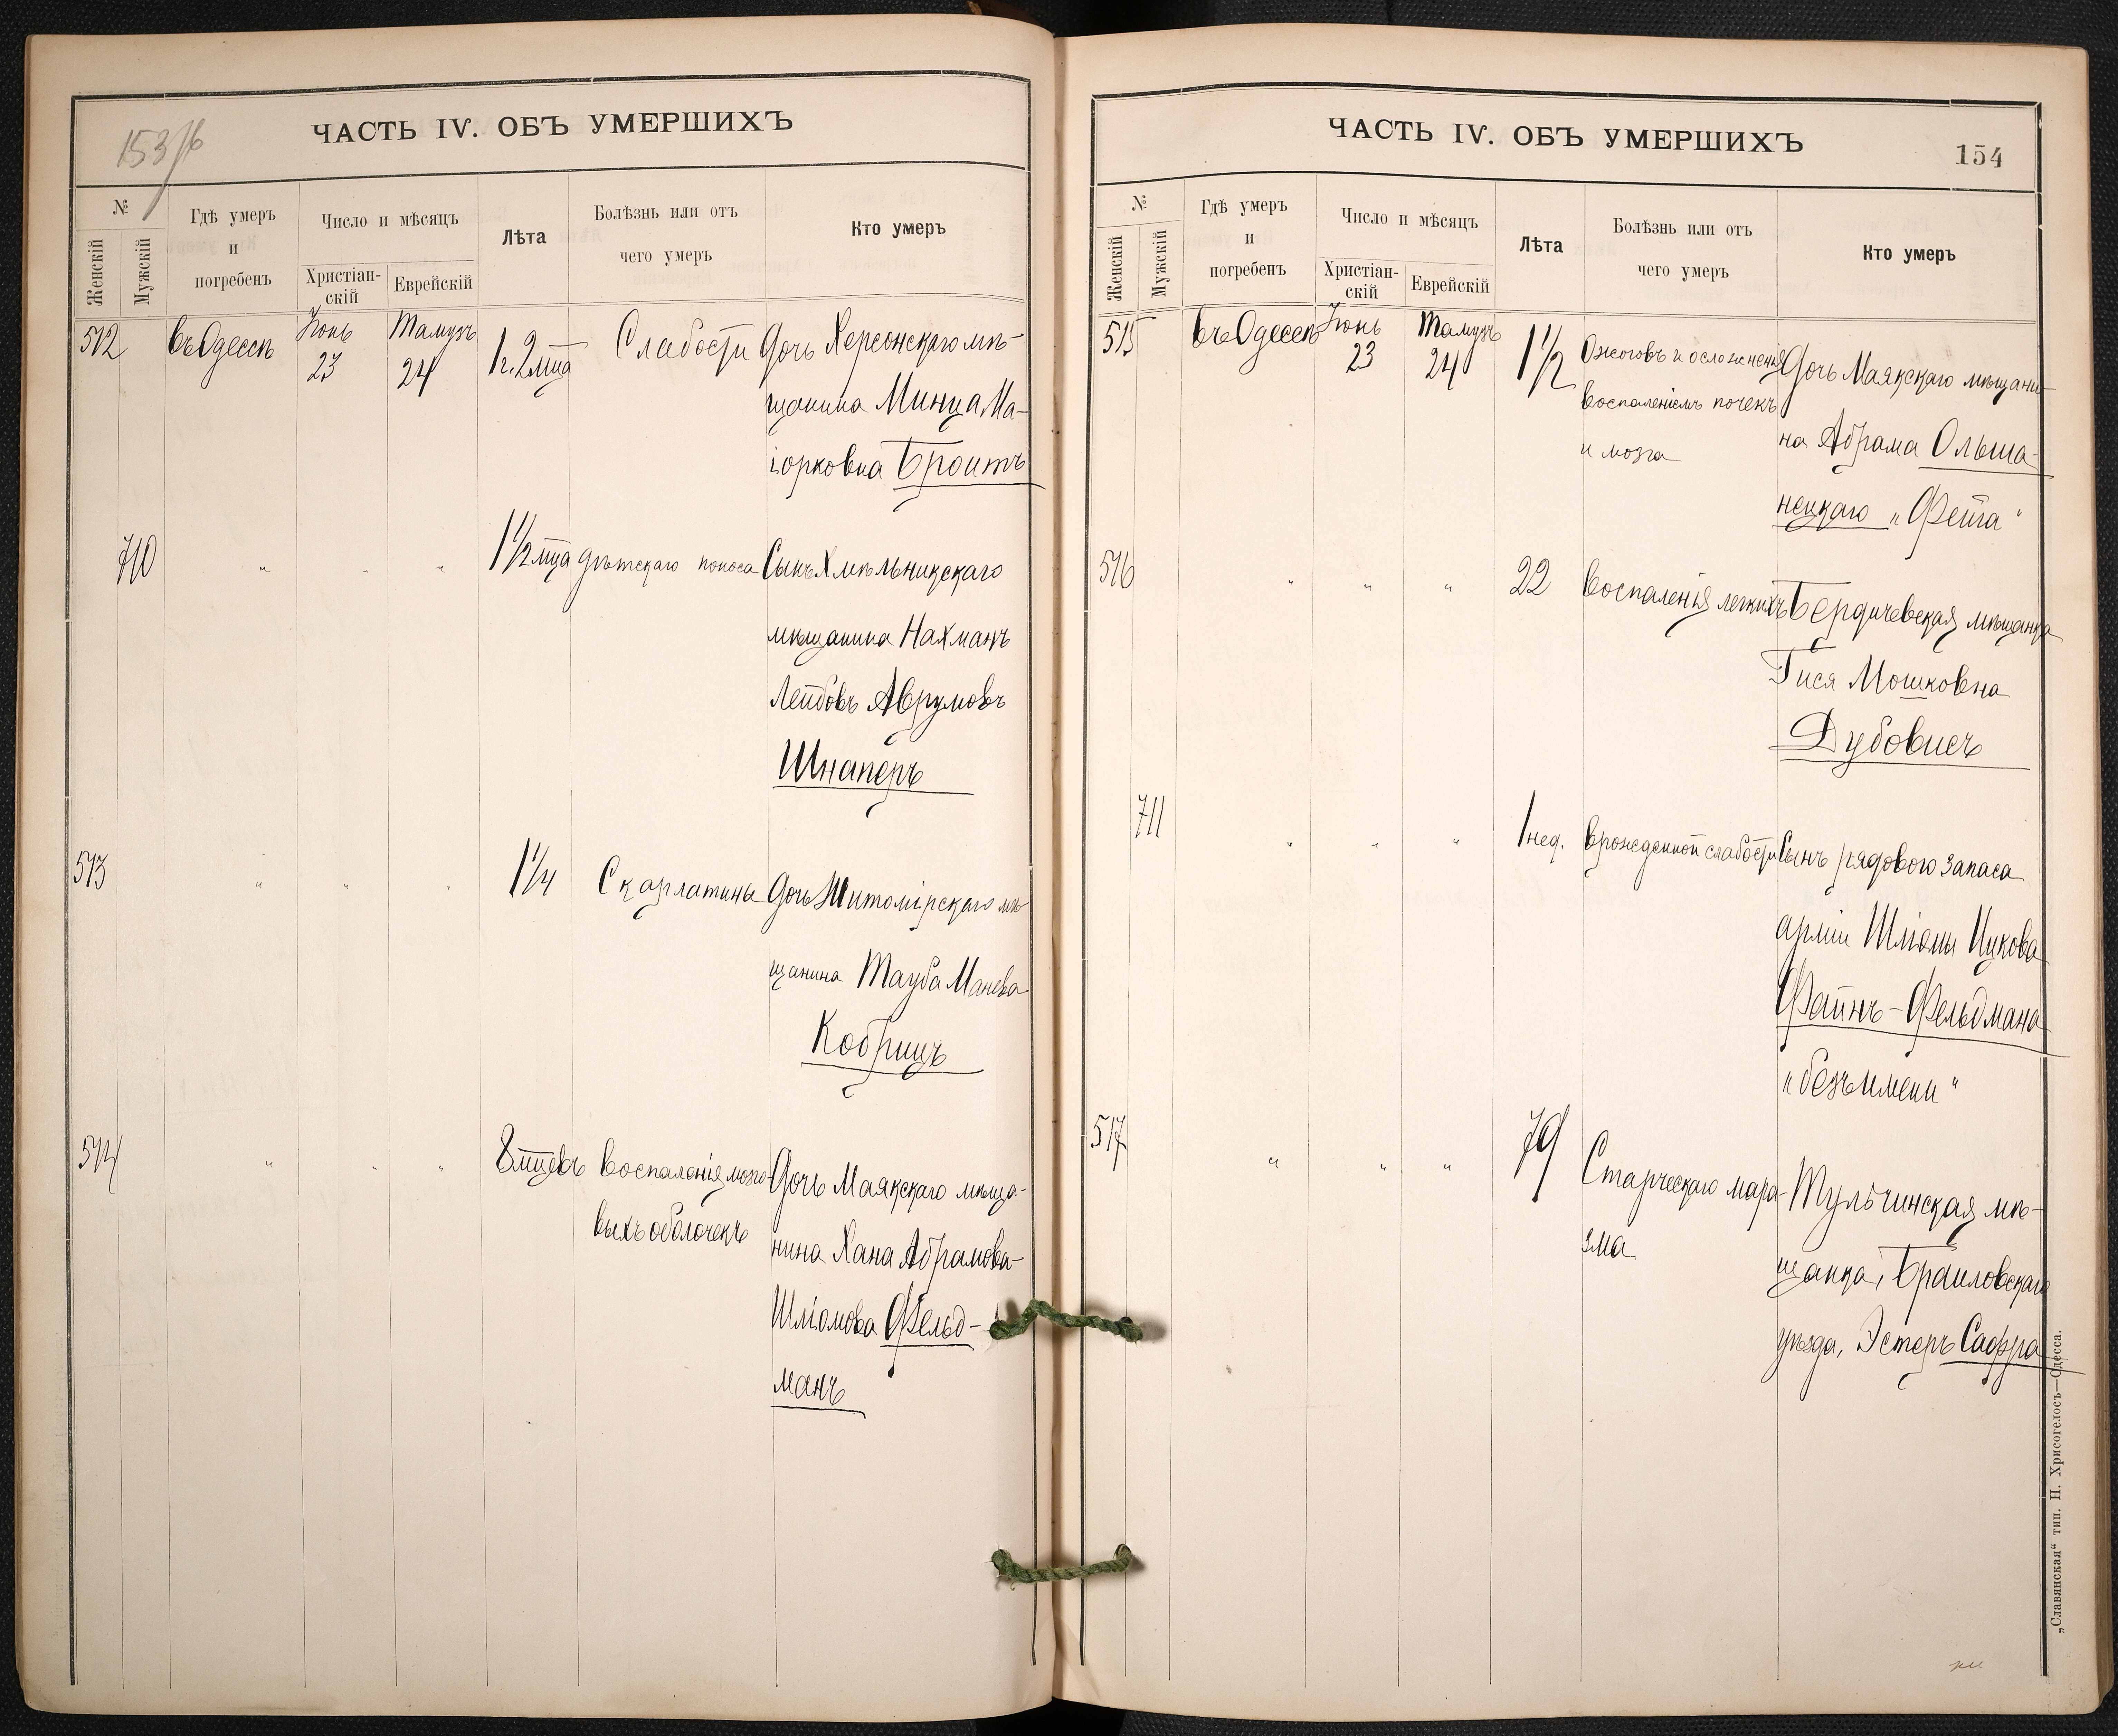 153/б
ЧАСТЬ IV. ОБЪ УМЕРШИХЪ
№
Женскій
Мужскій
Гдѣ умеръ
и
погребенъ
Число и мѣсяцъ
Христіан-
скій
Еврейскій
Лѣта
Болѣзнь или отъ
чего умеръ
Кто умеръ
512 въ Одессѣ Іюнь 23 Тамузъ 24 1 г. 2 мца Слабости Дочь Херсонскаго мѣ-
щанина Минца Ма-
іорковна Броитъ
710 " " " 1 1/2 мца дѣтскаго поноса Сынъ Хмѣльникскаго
мѣщанина Нахманъ
Лейбовъ Аврумовъ
Шнаперъ
513 " " " 1 1/4 Скарлатины Дочь Житомірскаго мѣ-
щанина Тауба Манева
Кобрицъ
514 " " " 8 мцевъ воспаленія мозго-
выхъ оболочекъ
Дочь Маякскаго мѣща-
нина Хана Абрамова-
Шліомова Фельд-
манъ
ЧАСТЬ IV. ОБЪ УМЕРШИХЪ
154
№
Женскій
Мужскій
Гдѣ умеръ
и
погребенъ
Число и мѣсяцъ
Христіан-
скій
Еврейскій
Лѣта
Болѣзнь или отъ
чего умеръ
Кто умеръ
515 въ Одессѣ Іюнь 23 Тамузъ 24 1 1/2 Ожоговъ и осложненія
воспаленіемъ почекъ
и мозга
Дочь Маякскаго мѣщани-
на Абрама Ольша-
нецкаго „Фейга“
516 " " " 22 воспаленія легкихъ Бердичевская мѣщанка
Гися Мошковна
Дубовисъ
711 " " " 1 нед. врожденной слабости Сынъ рядового запаса
арміи Шліомы Ицкова
Файнъ-Фельдмана
„безъ имени“
517 " " " 79 Старческаго мара-
зма
Тульчинская мѣ-
щанка, Браиловскаго
уѣзда, Эстеръ Сафра
„Славянская“ тип. Н. Хрисогелосъ—Одесса.